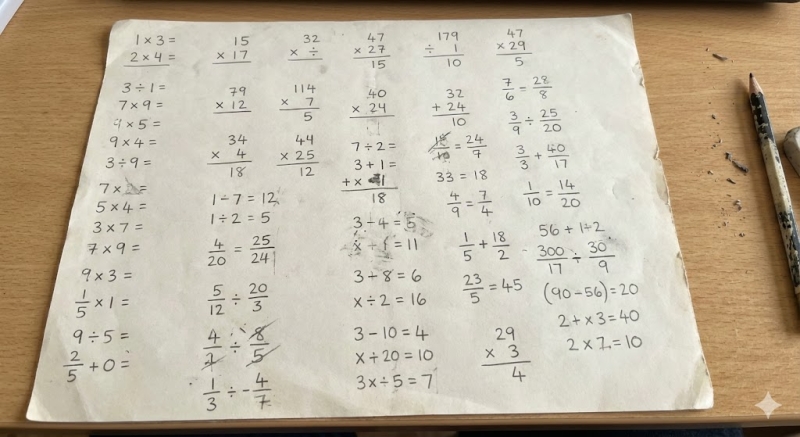 1 × 3 =
2 × 4 =
3 ÷ 1 =
7 × 9 =
4 × 5 =
9 × 4 =
3 ÷ 9 =
7 × =
5 × 4 =
3 × 7 =
7 × 9 =
9 × 3 =
1/5 × 1 =
9 ÷ 5 =
2/5 + 0 =
15
× 17
79
× 12
34
× 4
18
1 ÷ 7 = 12
1 ÷ 2 = 5
4/20 = 25/24
5/12 ÷ 20/3
4/7 ÷ 8/5
1/3 ÷ - 4/7
32
× ÷
114
× 7
5
44
× 25
12
47
× 27
15
40
× 24
7 ÷ 2 =
3 + 1 =
+ × 1
18
3 - 4 = 5
= 11
3 + 8 = 6
x ÷ 2 = 16
3 - 10 = 4
x ÷ 20 = 10
3x ÷ 5 = 7
179
÷ 1
10
32
+ 24
10
= 24/7
33 = 18
4/9 = 7/4
1/5 + 18/2
23/5 = 45
29
× 3
4
47
× 29
5
7/6 = 28/8
3/9 ÷ 25/20
3/3 + 40/17
1/10 = 14/20
56 + 1 ÷ 2
300/17 ÷ 30/9
(90 - 56) = 20
2 + x 3 = 40
2 × 7 = 10